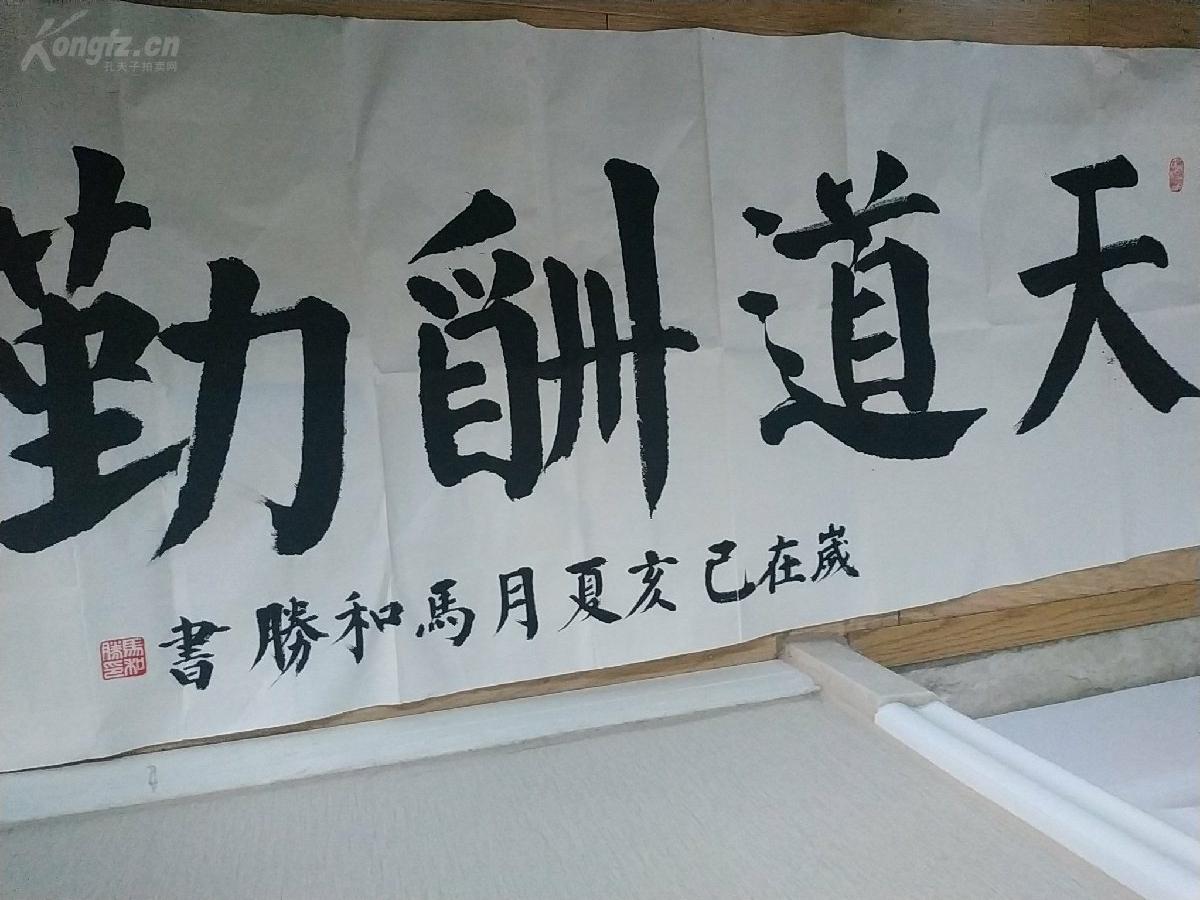 天道酬勤
歲在己亥夏月馬和勝書
馬和勝印
Kongfz.cn
孔夫子拍卖网